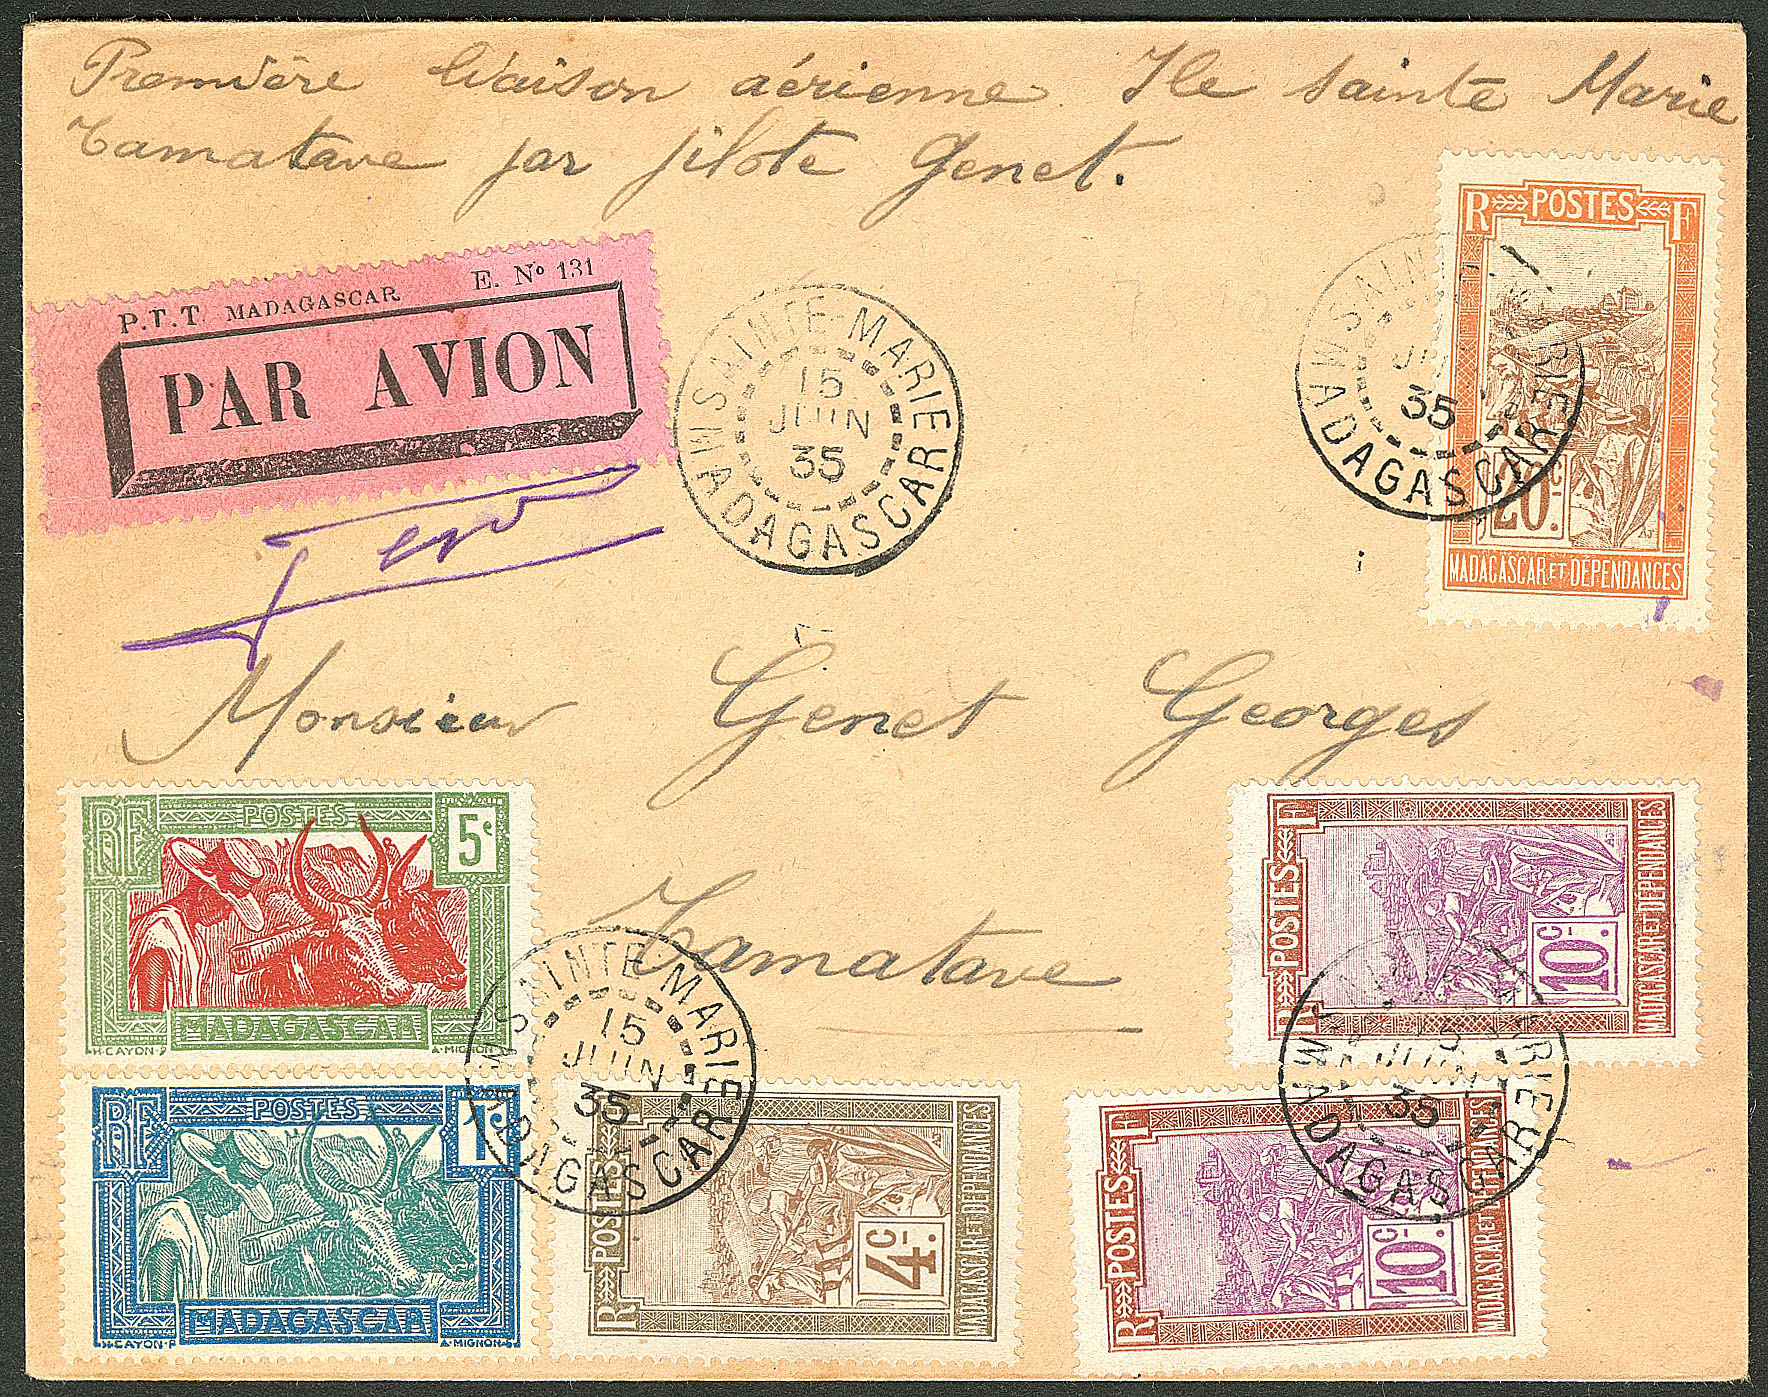 Première liaison aérienne Ile sainte Marie
Tamatave par pilote Genet.
P.T.T. MADAGASCAR E. Nº 131
PAR AVION
SAINTE-MARIE
15
JUIN
35
MADAGASCAR
R POSTES F
20c.
MADAGASCAR ET DÉPENDANCES
SAINTE-MARIE
35
MADAGASCAR
Monsieur Génet Georges
Tamatave
RF POSTES 5c
MADAGASCAR
H·CAYON·F A·MIGNON
R POSTES F
10c.
MADAGASCAR ET DÉPENDANCES
SAINTE-MARIE
15
JUIN
35
MADAGASCAR
SAINTE-MARIE
15
JUIN
35
MADAGASCAR
RF POSTES 1c
MADAGASCAR
H·CAYON·F A·MIGNON
R POSTES
4c.
MADAGASCAR ET DÉPENDANCES
R POSTES F
10c.
MADAGASCAR ET DÉPENDANCES